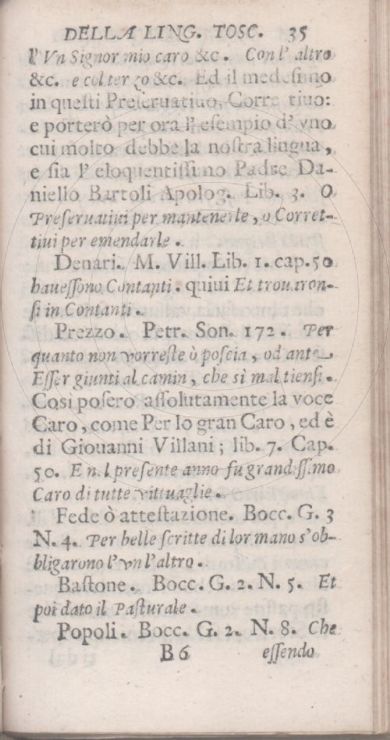 DELLA LING. TOSC. 35
l' Vn Signor mio caro &c. Con l' altro
&c. e col terzo &c. Ed il medesimo
in questi Preseruatiuo, Corre tiuo:
e porterò per ora l' esempio d' vno
cui molto debbe la nostra lingua,
e sia l' eloquentissimo Padre Da-
niello Bartoli Apolog. Lib. 3. O
Preseruatiui per mantenerle, o Corret-
tiui per emendarle.
Denari. M. Vill. Lib. 1. cap. 50
hauessono Contanti. quiui Et trouaron-
si in Contanti.
Prezzo. Petr. Son. 172. Per
quanto non vorreste ò poscia, od ante.
Esser giunti al camin, che sì mal tiensi.
Così posero assolutamente la voce
Caro, come Per lo gran Caro, ed è
di Giouanni Villani; lib. 7. Cap.
50. E n. l presente anno fu grandissimo
Caro di tutte vittuaglie.
Fede ò attestazione. Bocc. G. 3
N. 4. Per belle scritte di lor mano s' ob-
bligarono l' vn l' altro.
Bastone. Bocc. G. 2. N. 5. Et
poi dato il Pasturale.
Popoli. Bocc. G. 2. N. 8. Che
B 6 essendo